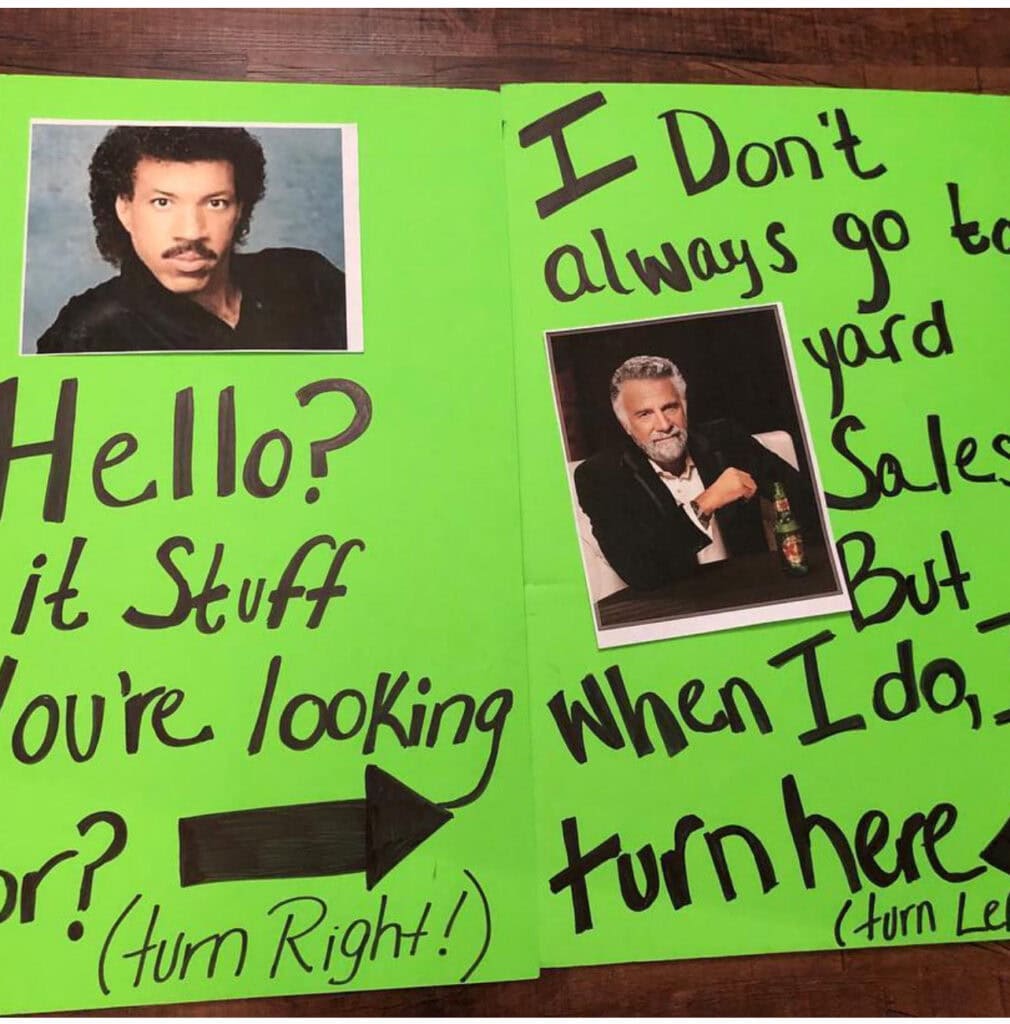 Hello?
it Stuff
You're looking
or?
(turn Right!)
I Don't
always go to
yard
Sales
But
when I do, I
turn here
(turn